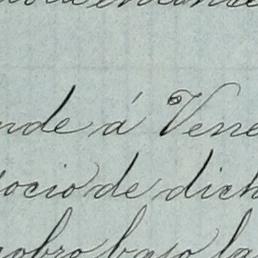 nde á Vene
ocio de dich
cobro bajo la